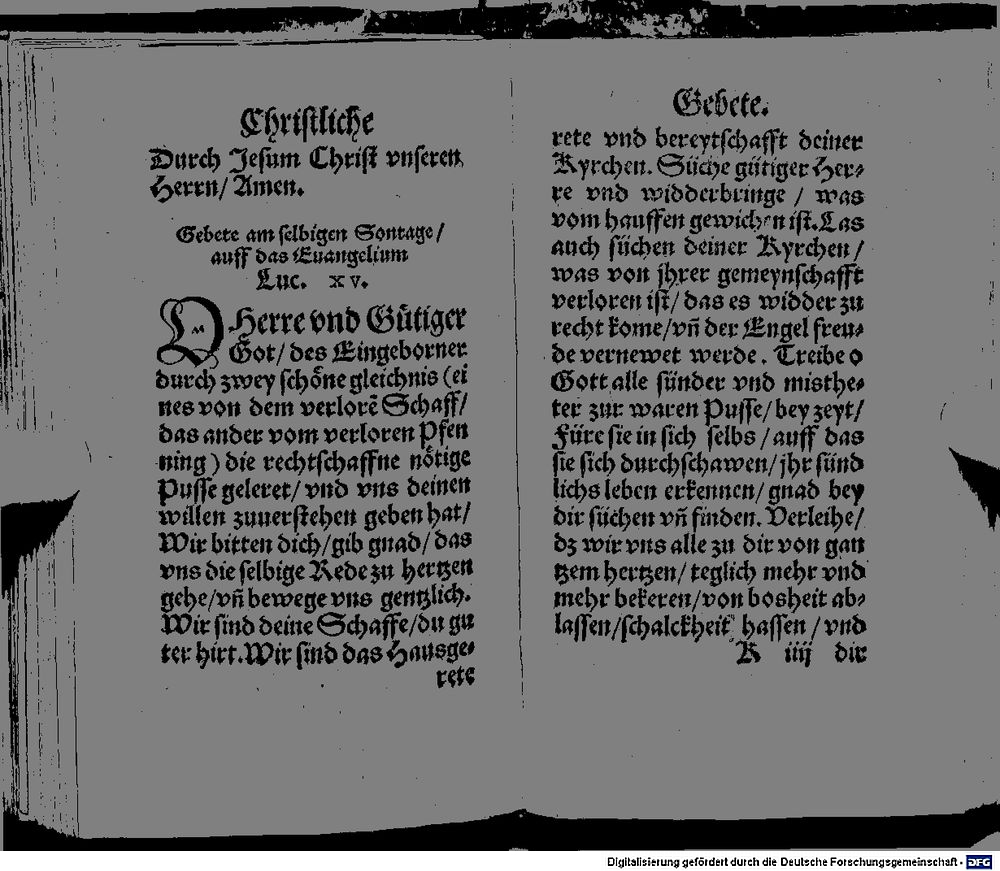 Christliche
Durch Jesum Christ vnseren
Herrn/ Amen.
Gebete am selbigen Sontage/
auff das Euangelium
Luc. xv.
O Herre vnd Gütiger
Got/ des Eingeborner
durch zwey schöne gleichnis (ei
nes von dem verlorē Schaff/
das ander vom verloren Pfen
ning) die rechtschaffne nötige
Pusse geleret/ vnd vns deinen
willen zuuerstehen geben hat/
Wir bitten dich/ gib gnad/ das
vns die selbige Rede zu hertzen
gehe/ vn̄ bewege vns gentzlich.
Wir sind deine Schaffe/ du gu
ter hirt. Wir sind das Hausge⸗
rete
Gebete.
rete vnd bereytschafft deiner
Kyrchen. Süche gütiger Her⸗
re vnd widderbringe / was
vom hauffen gewichen ist. Las
auch süchen deiner Kyrchen/
was von jhrer gemeynschafft
verloren ist/ das es widder zu
recht kome/ vn̄ der Engel freu⸗
de vernewet werde. Treibe o
Gott alle sünder vnd misthe⸗
ter zur waren Pusse/ bey zeyt/
Füre sie in sich selbs / auff das
sie sich durchschawen/ jhr sünd
lichs leben erkennen/ gnad bey
dir süchen vn̄ finden. Verleihe/
dz wir vns alle zu dir von gan
tzem hertzen/ teglich mehr vnd
mehr bekeren/ von bosheit ab⸗
lassen/ schalckheit hassen / vnd
K iiij dir
Digitalisierung gefördert durch die Deutsche Forschungsgemeinschaft - DFG